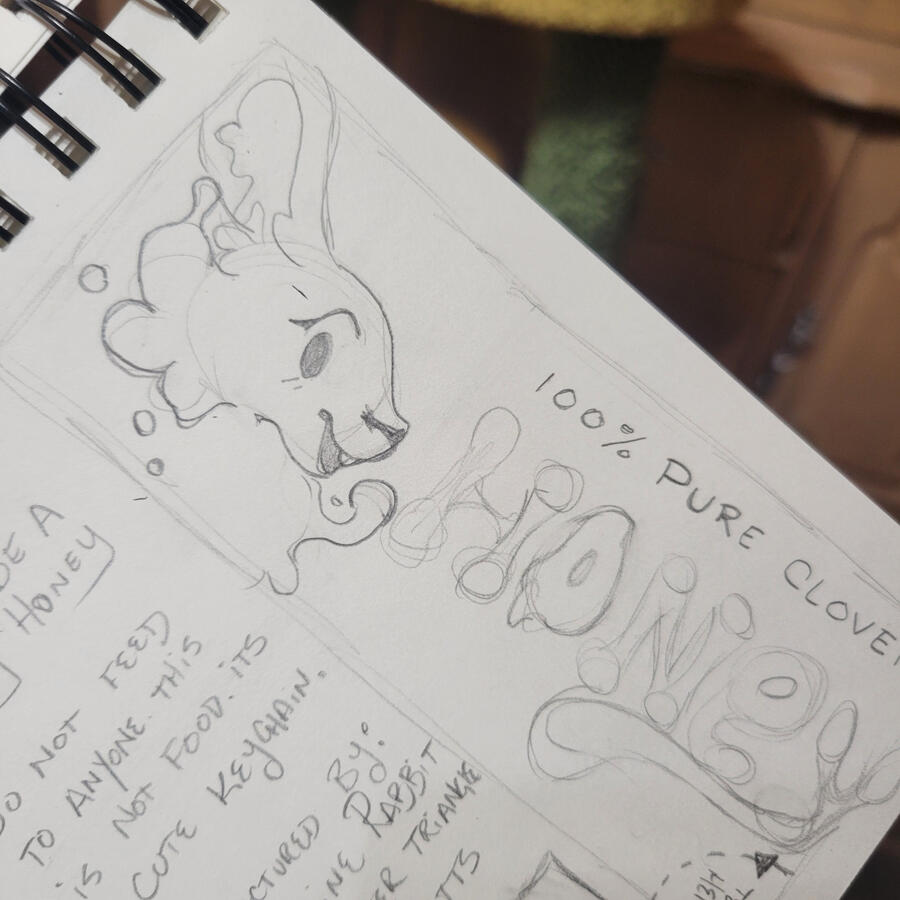 100% PURE CLOVER
HONEY
DE A
HONEY
DO NOT FEED
TO ANYONE. THIS
IS NOT FOOD. ITS
CUTE KEYCHAIN.
CTURED BY:
INE RABBIT
ER TRIANGLE
TTS
13/4